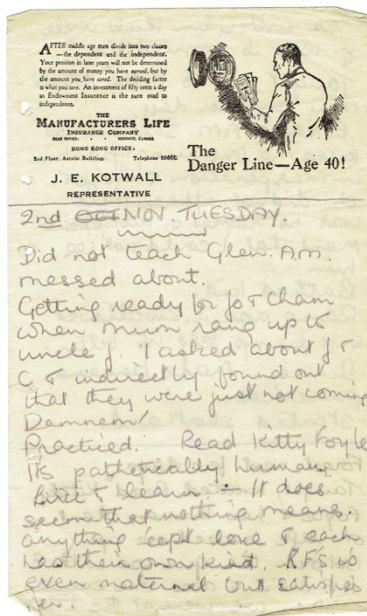 AFTER middle age men divide into two classes
— the dependent and the independent.
Your position in later years will not be determined
by the amount of money you have earned, but by
the amount you have saved. The deciding factor
is what you save. An investment of fifty cents a day
in Endowment Insurance is the sure road to
independence.
THE
MANUFACTURERS LIFE
INSURANCE COMPANY
HEAD OFFICE, TORONTO, CANADA
HONG KONG OFFICE:
2nd Floor, Asiatic Building. Telephone
J. E. KOTWALL
REPRESENTATIVE
The
Danger Line—Age 40!
2nd NOV. TUESDAY.
Did not teach Glen. A.M.
messed about.
Getting ready for Jo & Cham
when mum rang up to
uncle J. I asked about J &
C & indirectly found out
that they were just not coming
Damnem!
Practiced. Read Kitty Foyle
Its pathetically human,
Live & learn. — It does
seem that nothing means
anything cept love & each
has their own kind.
even maternal but satisfies